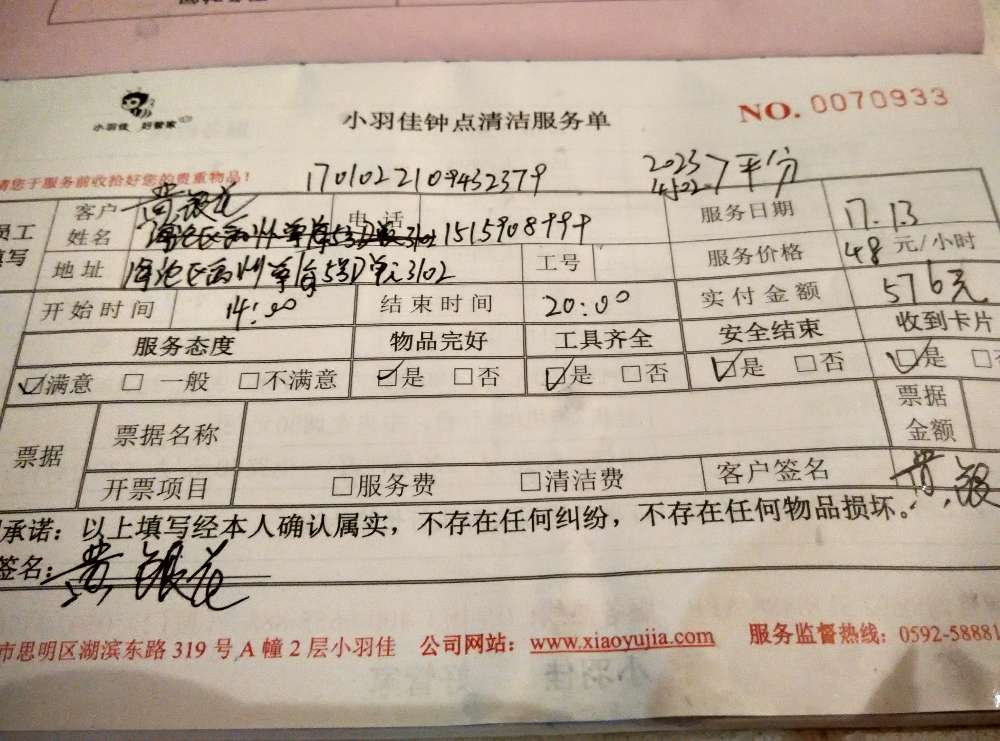 小羽佳 好管家
小羽佳钟点清洁服务单
NO. 0070933
请您于服务前收拾好您的贵重物品!
1701022109432379
20237平分
4502
员工填写
客户姓名 黄银花
电话 1515908999
服务日期 17.13
地址 海沧区 5号D单元3102
工号
服务价格 48元/小时
开始时间 14:00
结束时间 20:00
实付金额 576元
服务态度 物品完好 工具齐全 安全结束 收到卡片
☑满意 □一般 □不满意 ☑是 □否 ☑是 □否 ☑是 □否 ☑是 □否
票据 票据名称 票据金额
开票项目 □服务费 □清洁费 客户签名 黄银
承诺:以上填写经本人确认属实,不存在任何纠纷,不存在任何物品损坏。
签名:黄银花
市思明区湖滨东路319号A幢2层小羽佳 公司网站:www.xiaoyujia.com 服务监督热线:0592-58881